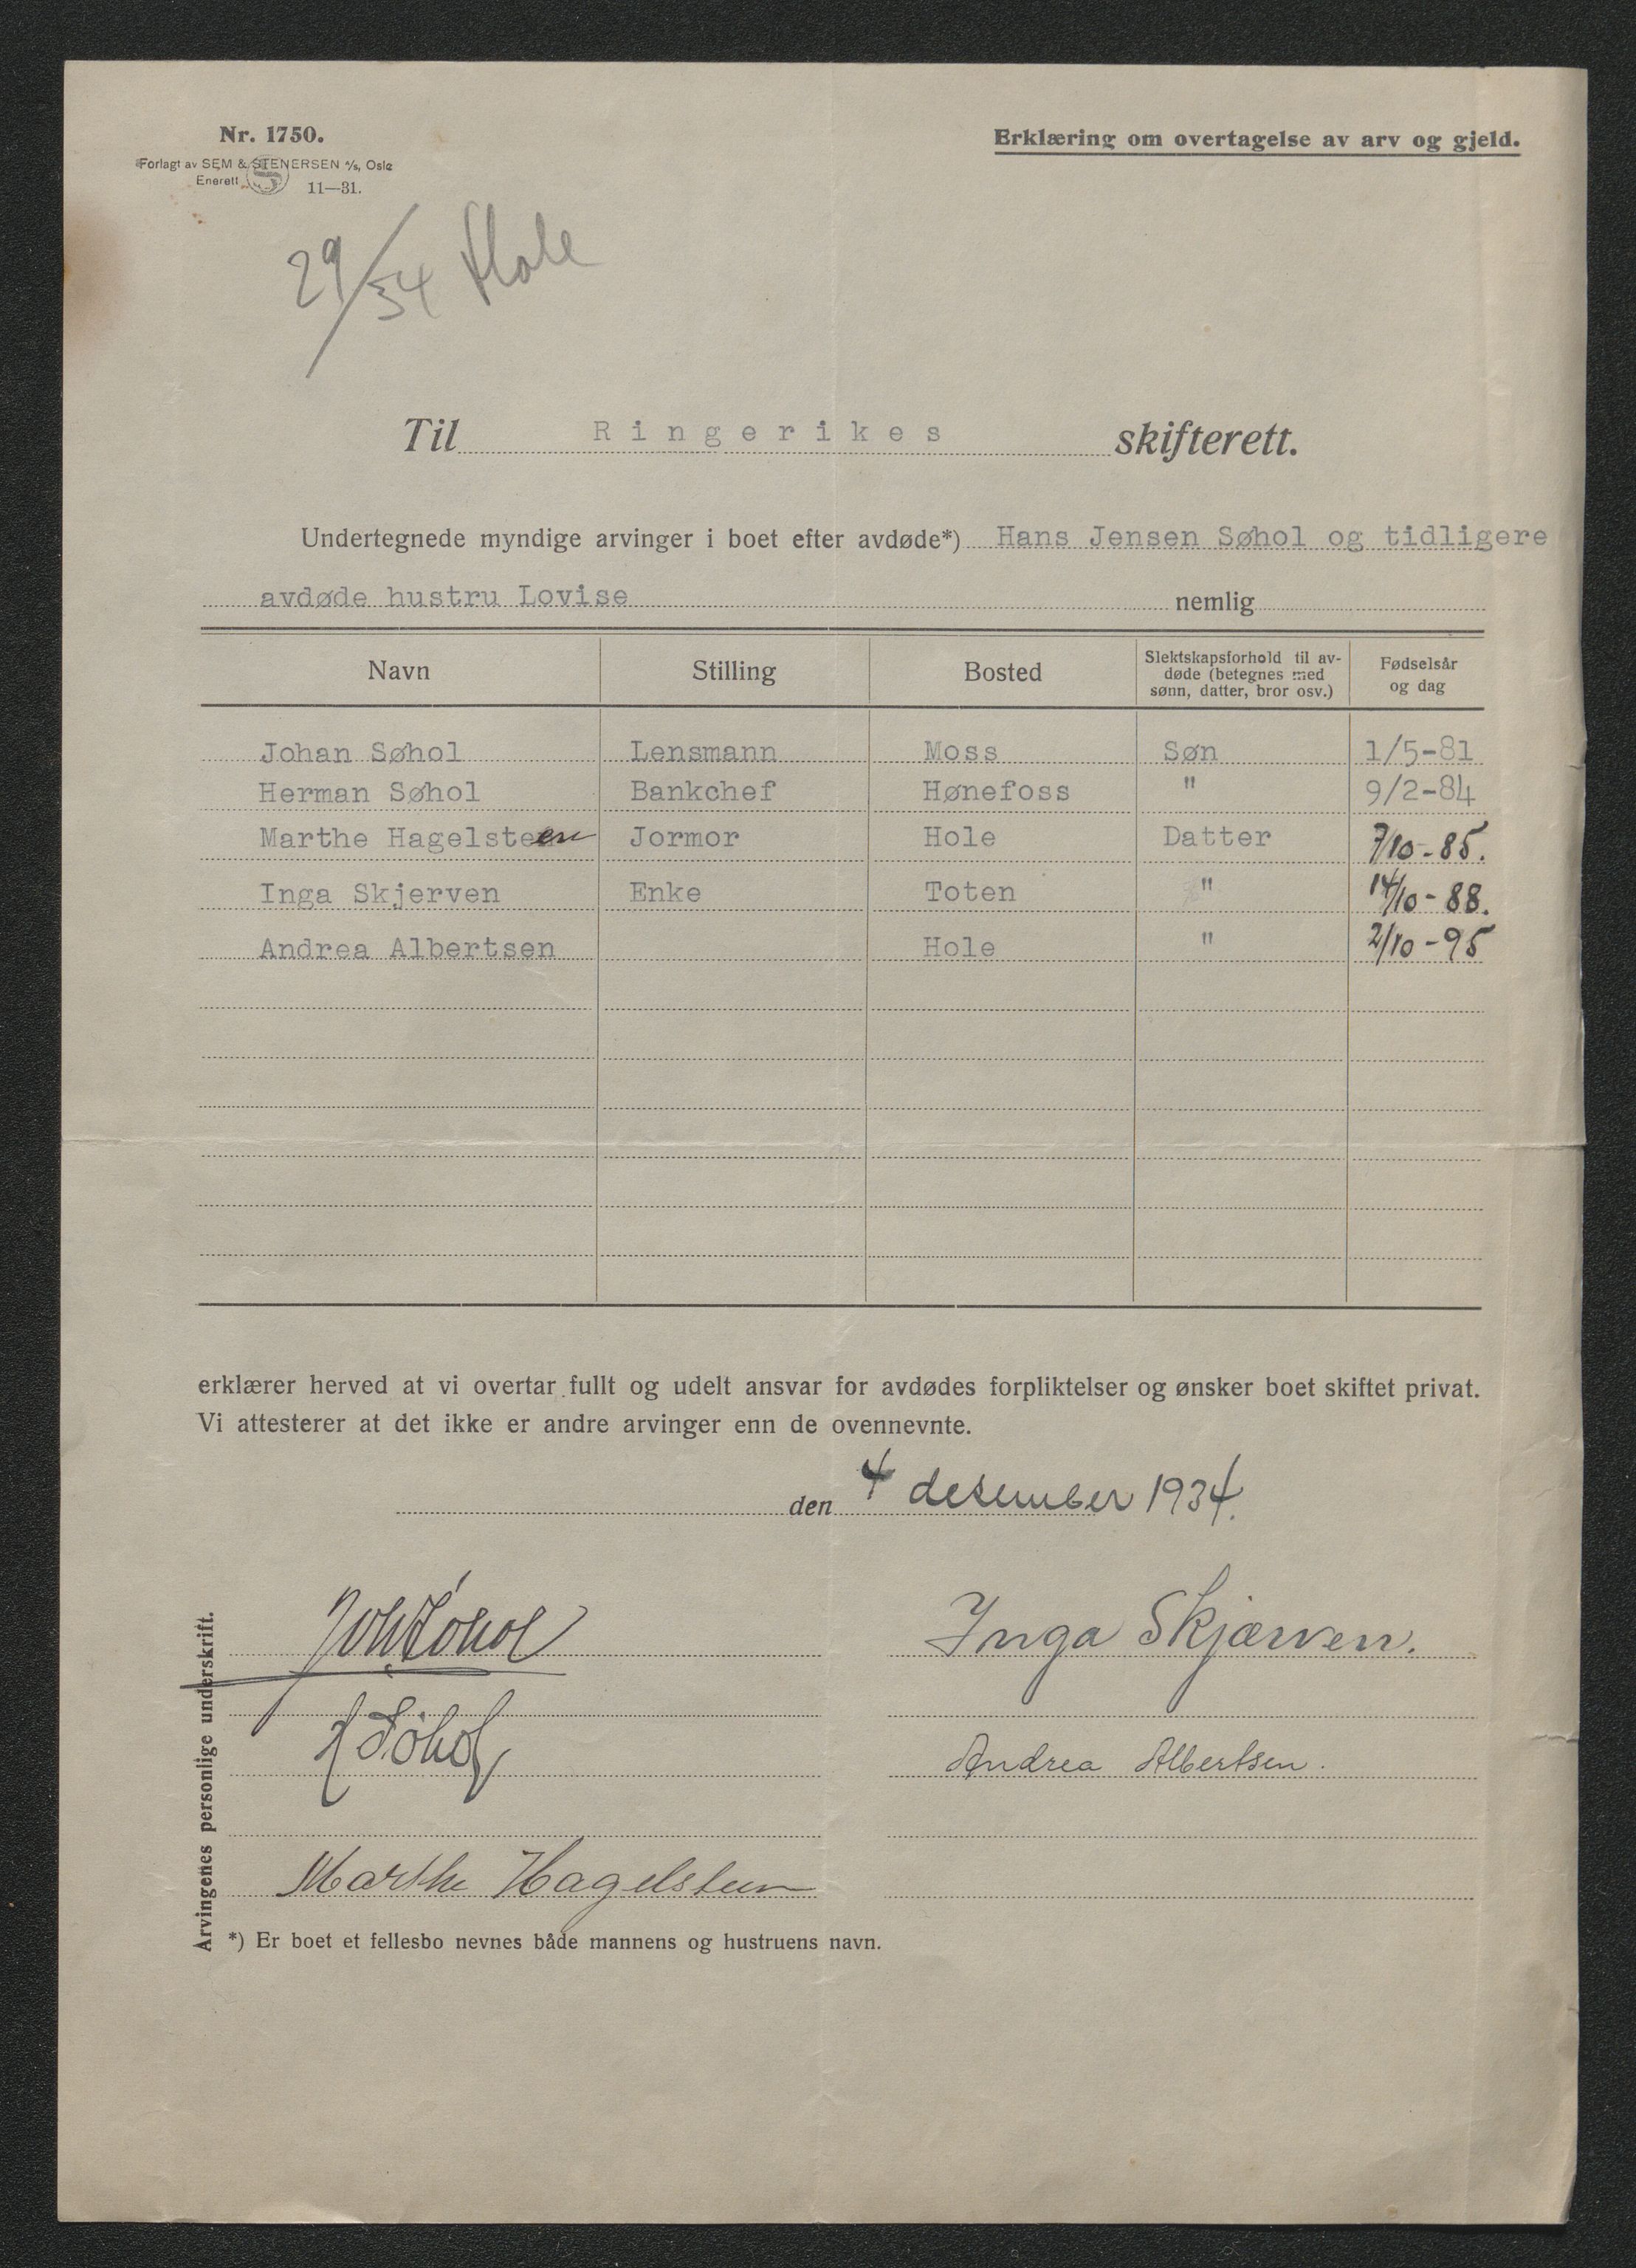 Nr. 1750.
Forlagt av SEM & STENERSEN A/s, Oslo
Enerett 11—31.
Erklæring om overtagelse av arv og gjeld.
29/34 Hole
Til Ringerikes skifterett.
Undertegnede myndige arvinger i boet efter avdøde*) Hans Jensen Søhol og tidligere
avdøde hustru Lovise nemlig
Navn Stilling Bosted Slektskapsforhold til avdøde (betegnes med sønn, datter, bror osv.) Fødselsår og dag
Johan Søhol Lensmann Moss Søn 1/5-81
Herman Søhol Bankchef Hønefoss " 9/2-84
Marthe Hagelsteen Jormor Hole Datter 7/10-85.
Inga Skjerven Enke Toten " 14/10-88.
Andrea Albertsen Hole " 2/10-95
erklærer herved at vi overtar fullt og udelt ansvar for avdødes forpliktelser og ønsker boet skiftet privat.
Vi attesterer at det ikke er andre arvinger enn de ovennevnte.
den 4 desember 1934.
Arvingenes personlige underskrift.
Joh Søhol
Inga Skjærven.
H Søhol
Andrea Albertsen.
Marthe Hagelsteen
*) Er boet et fellesbo nevnes både mannens og hustruens navn.